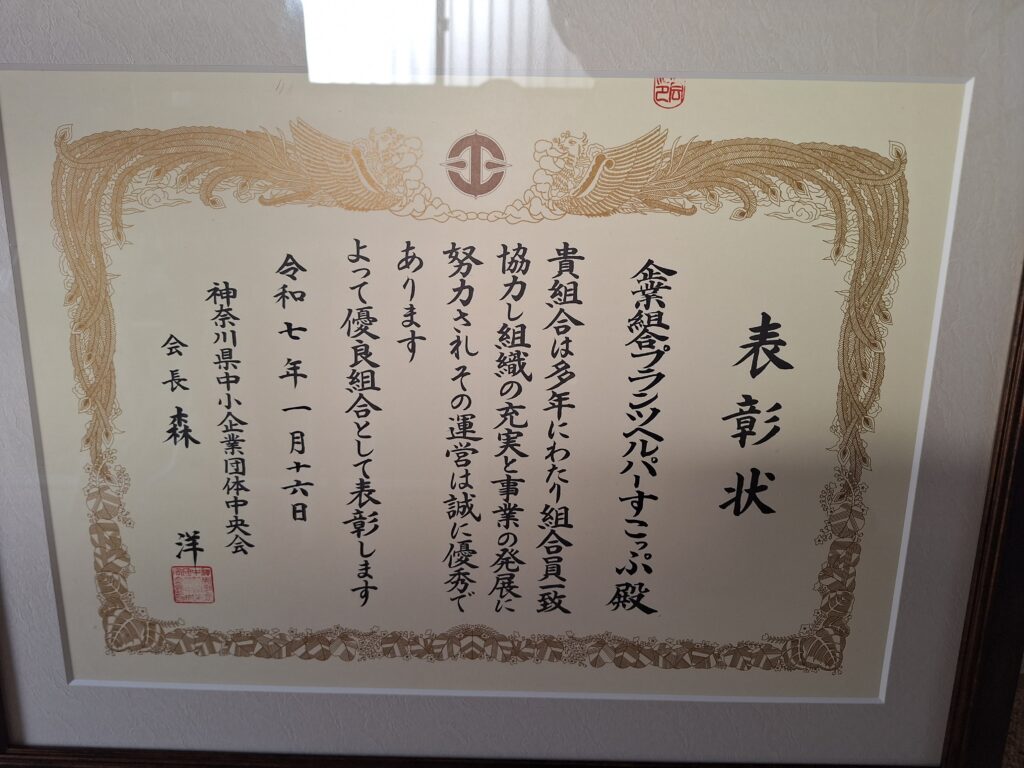 表彰状
企業組合プランツヘルパーすこっぷ 殿
貴組合は多年にわたり組合員一致
協力し組織の充実と事業の発展に
努力されその運営は誠に優秀で
あります
よって優良組合として表彰します
令和七年一月十六日
神奈川県中小企業団体中央会
会長 森 洋